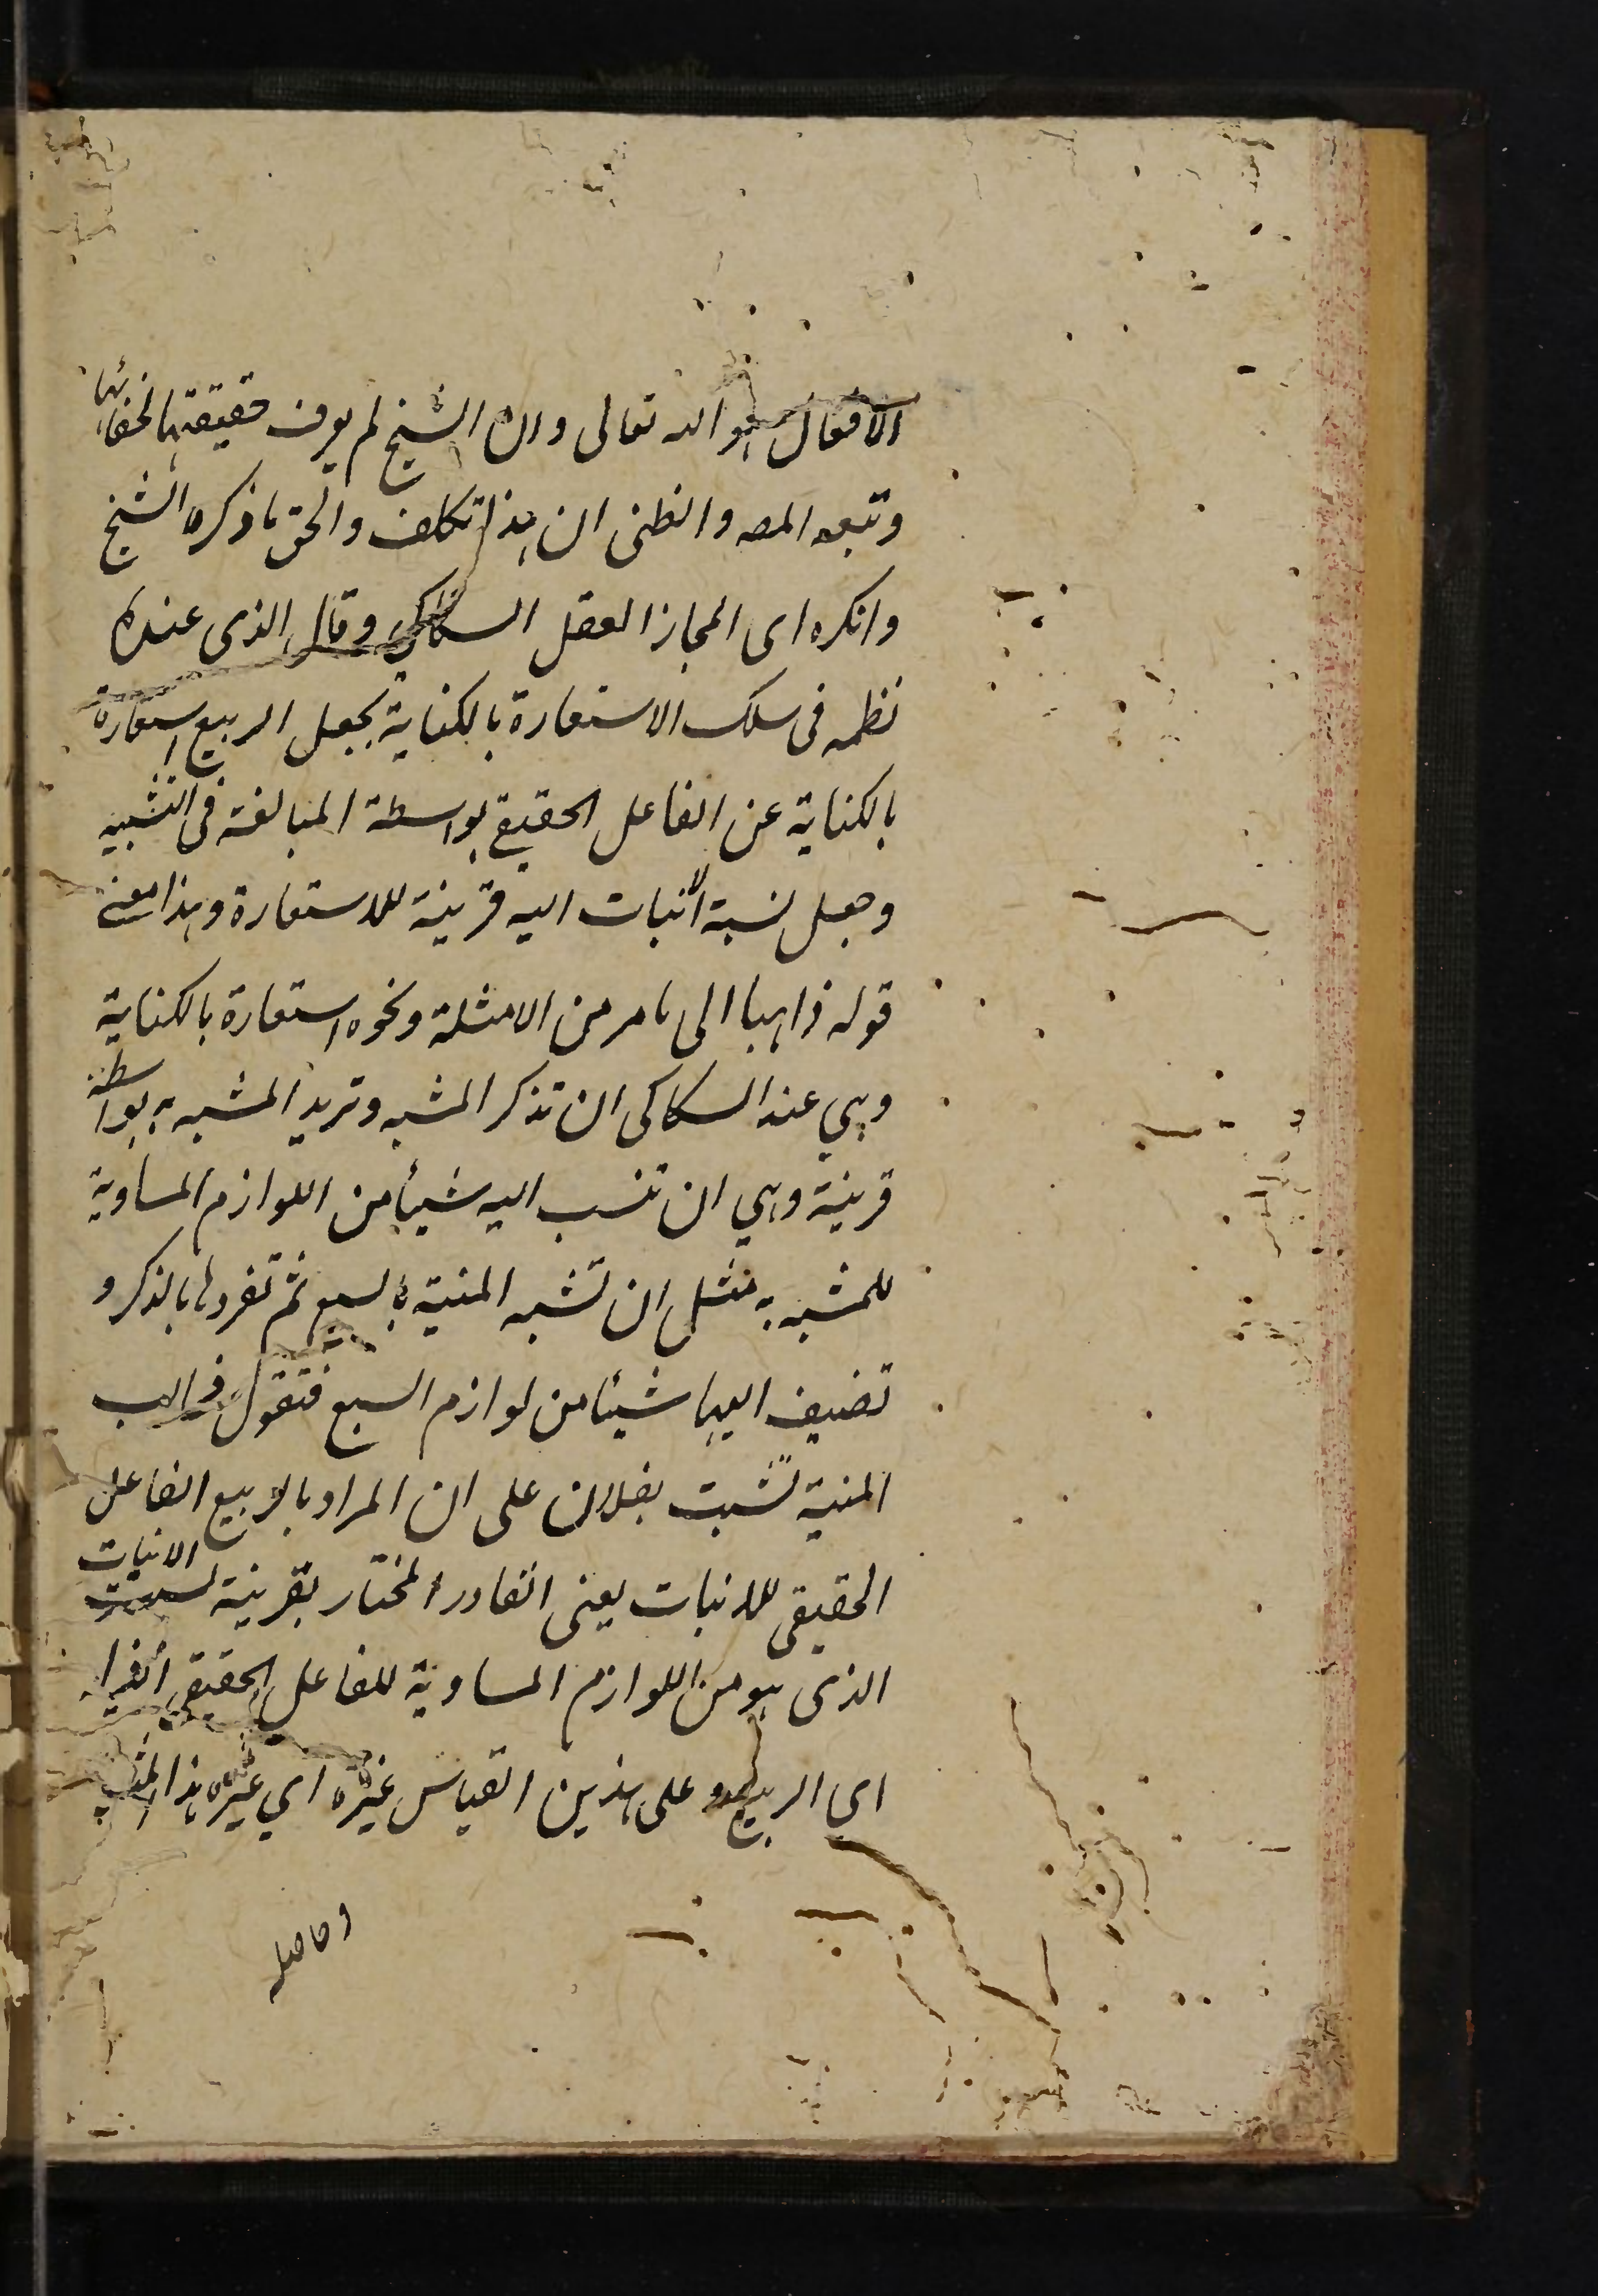 الافعال هو الله تعالى وان الشيخ لم يعرف حقيقتها لخفائها
وتبعه المصـ والظنى ان هذا تكلف والحق ما ذكره الشيخ
وانكره اى المجاز العقلى السكاكى وقال الذى عندى
نظمه فى سلك الاستعارة بالكناية بجعل الربيع استعارة
بالكناية عن الفاعل الحقيقي بواسطة المبالغة فى التشبيه
وجعل نسبة الانبات اليه قرينة للاستعارة وهذا معنى
قوله ذاهبا الى ما مر من الامثلة ونحوه استعارة بالكناية
وهي عند السكاكى ان تذكر المشبه وتريد المشبه به بواسطة
قرينة وهي ان تنسب اليه شيأ من اللوازم المساوية
للمشبه به مثل ان تشبه المنية بالسبع ثم تفردها بالذكر و
تضيف اليها شيئا من لوازم السبع فتقول مخالب
المنية نشبت بفلان على ان المراد بالربيع الفاعل
الحقيقى للانبات يعنى القادر المختار بقرينة نسبة الانبات
الذى هو من اللوازم المساوية للفاعل الحقيقي اليه
اى الربيع وعلى هذين القياس غيره اي غير هذا المثال
وحاصله